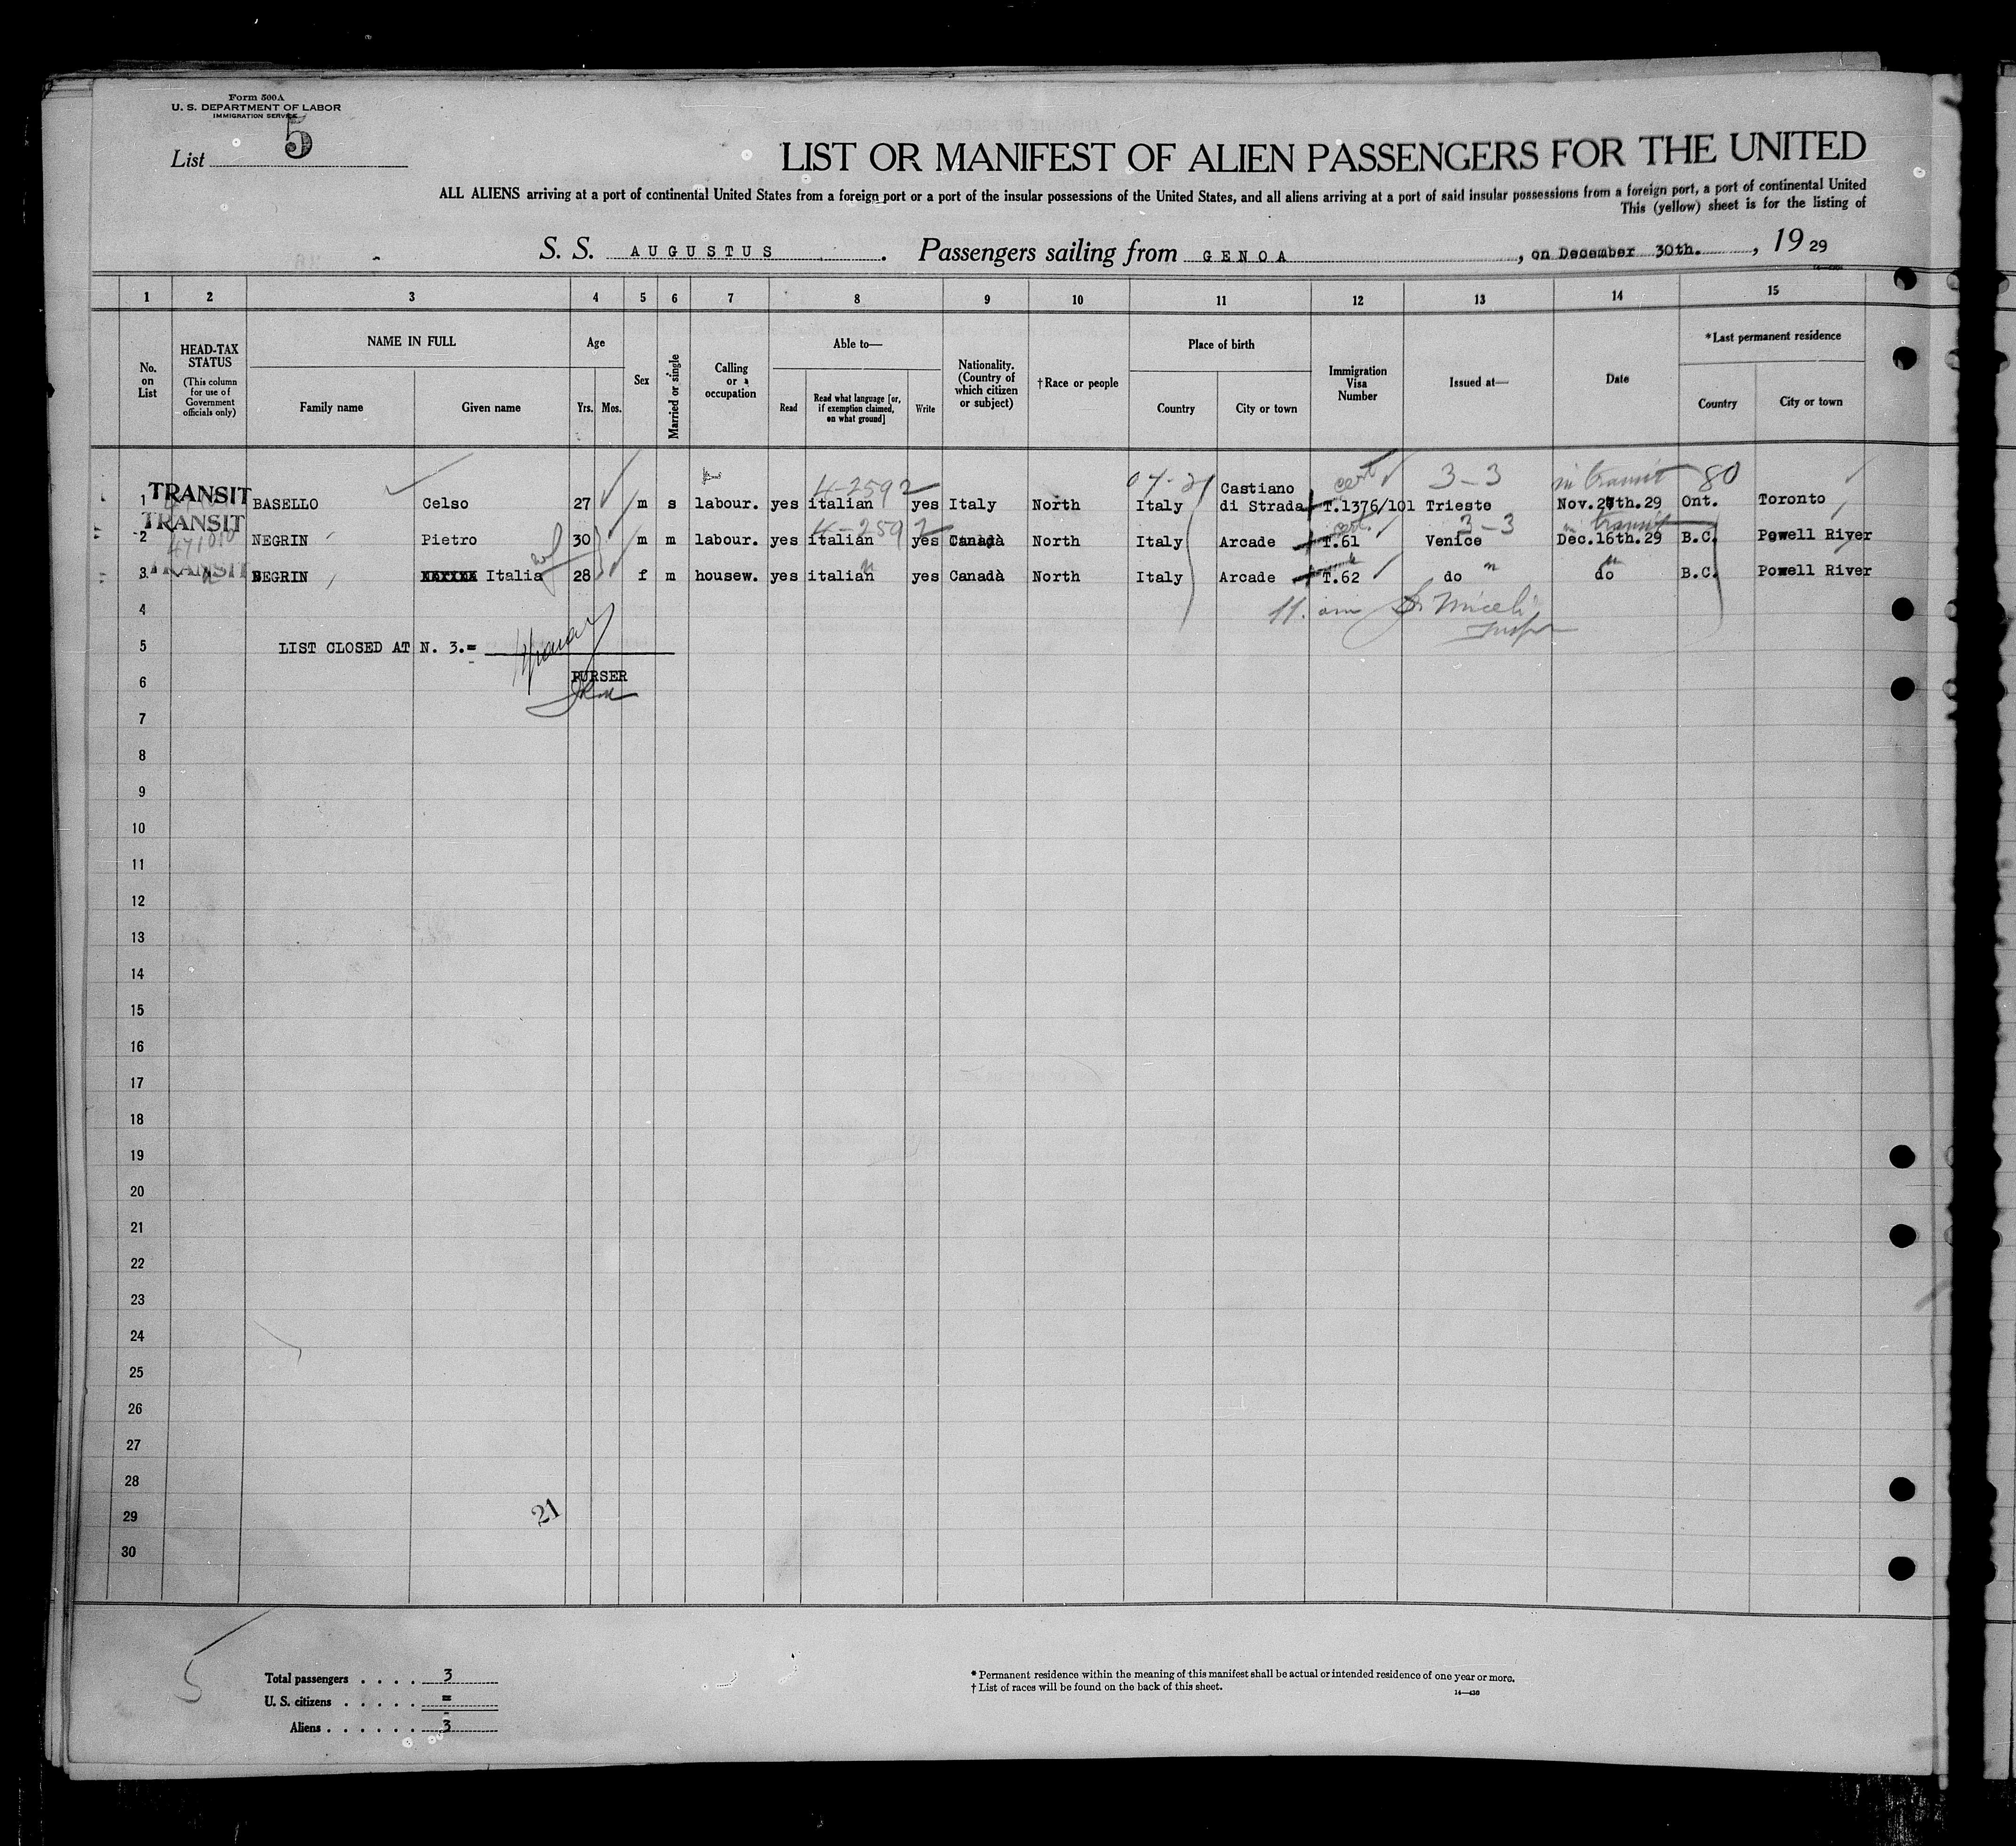 Form 500A
U. S. DEPARTMENT OF LABOR
IMMIGRATION SERVICE
List 5
LIST OR MANIFEST OF ALIEN PASSENGERS FOR THE UNITED
ALL ALIENS arriving at a port of continental United States from a foreign port or a port of the insular possessions of the United States, and all aliens arriving at a port of said insular possessions from a foreign port, a port of continental United
This (yellow) sheet is for the listing of
S. S. AUGUSTUS. Passengers sailing from GENOA, on December 30th., 1929
1 2 3 4 5 6 7 8 9 10 11 12 13 14 15
No. on List
HEAD-TAX STATUS
(This column for use of Government officials only)
NAME IN FULL
Family name Given name
Age
Yrs. Mos.
Sex
Married or single
Calling or occupation
Able to—
Read
Read what language [or, if exemption claimed, on what ground]
Write
Nationality. (Country of which citizen or subject)
†Race or people
Place of birth
Country City or town
Immigration Visa Number
Issued at—
Date
*Last permanent residence
Country City or town
4-2592 07-21 cert 3-3 in transit 80
1 TRANSIT BASELLO Celso 27 m s labour. yes italian yes Italy North Italy Castiano di Strada T.1376/101 Trieste Ont. Toronto
4-2592 cert. 3-3 in transit
2 TRANSIT NEGRIN Pietro 30 m m labour. yes italian yes Canadà North Italy Arcade T.61 Venice Dec.16th.29 B.C. Powell River
3 TRANSIT NEGRIN Italia 28 f m housew. yes italian yes Canadà North Italy Arcade T.62 do do B.C. Powell River
4 11. am Miceli
Insp
5 LIST CLOSED AT N. 3.=
6 PURSER
7
8
9
10
11
12
13
14
15
16
17
18
19
20
21
22
23
24
25
26
27
28
29 21
30
5
Total passengers . . . . 3
U. S. citizens . . . . . =
Aliens . . . . . . 3
* Permanent residence within the meaning of this manifest shall be actual or intended residence of one year or more.
† List of races will be found on the back of this sheet.
14—430